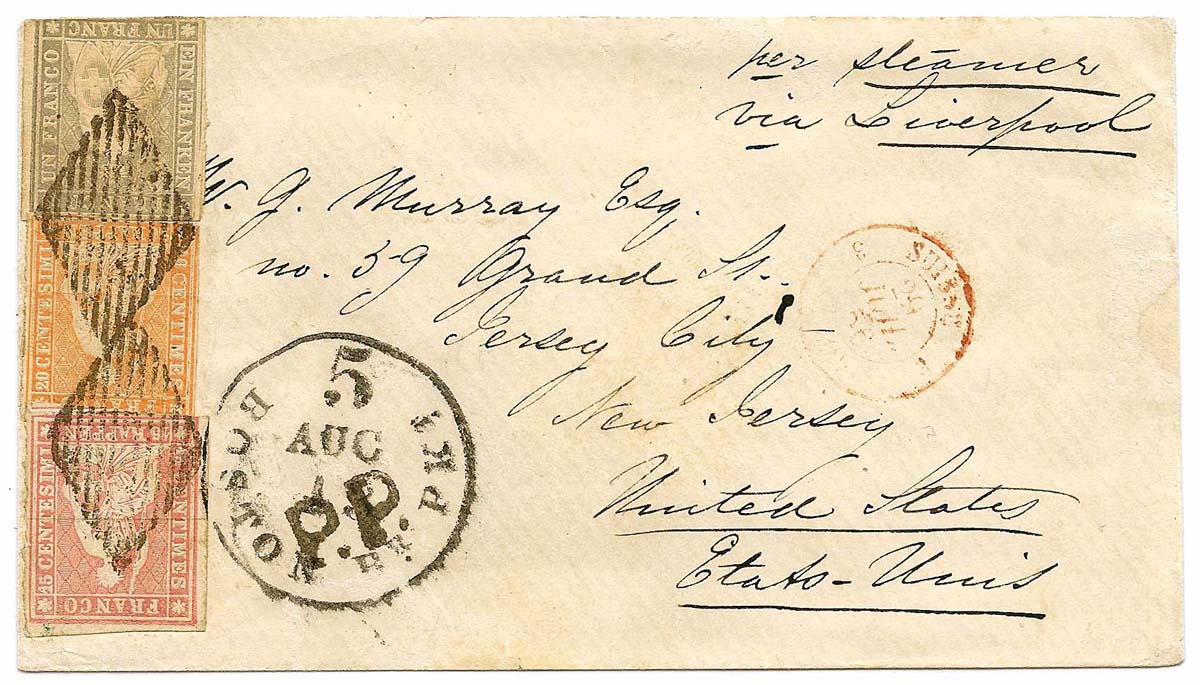 per steamer
via Liverpool
W. G. Murray Esq.
no. 59 Grand St.
Jersey City -
New Jersey
United States
Etats-Unis
UN FRANC
UN FRANCO
EIN FRANKEN
20 CENTESIMI
CENTIMES
15 CENTESIMI
15 RAPPEN
CENTIMES
FRANCO
BOSTON BR. PKT
5
AUG
P.P.
SUISSE